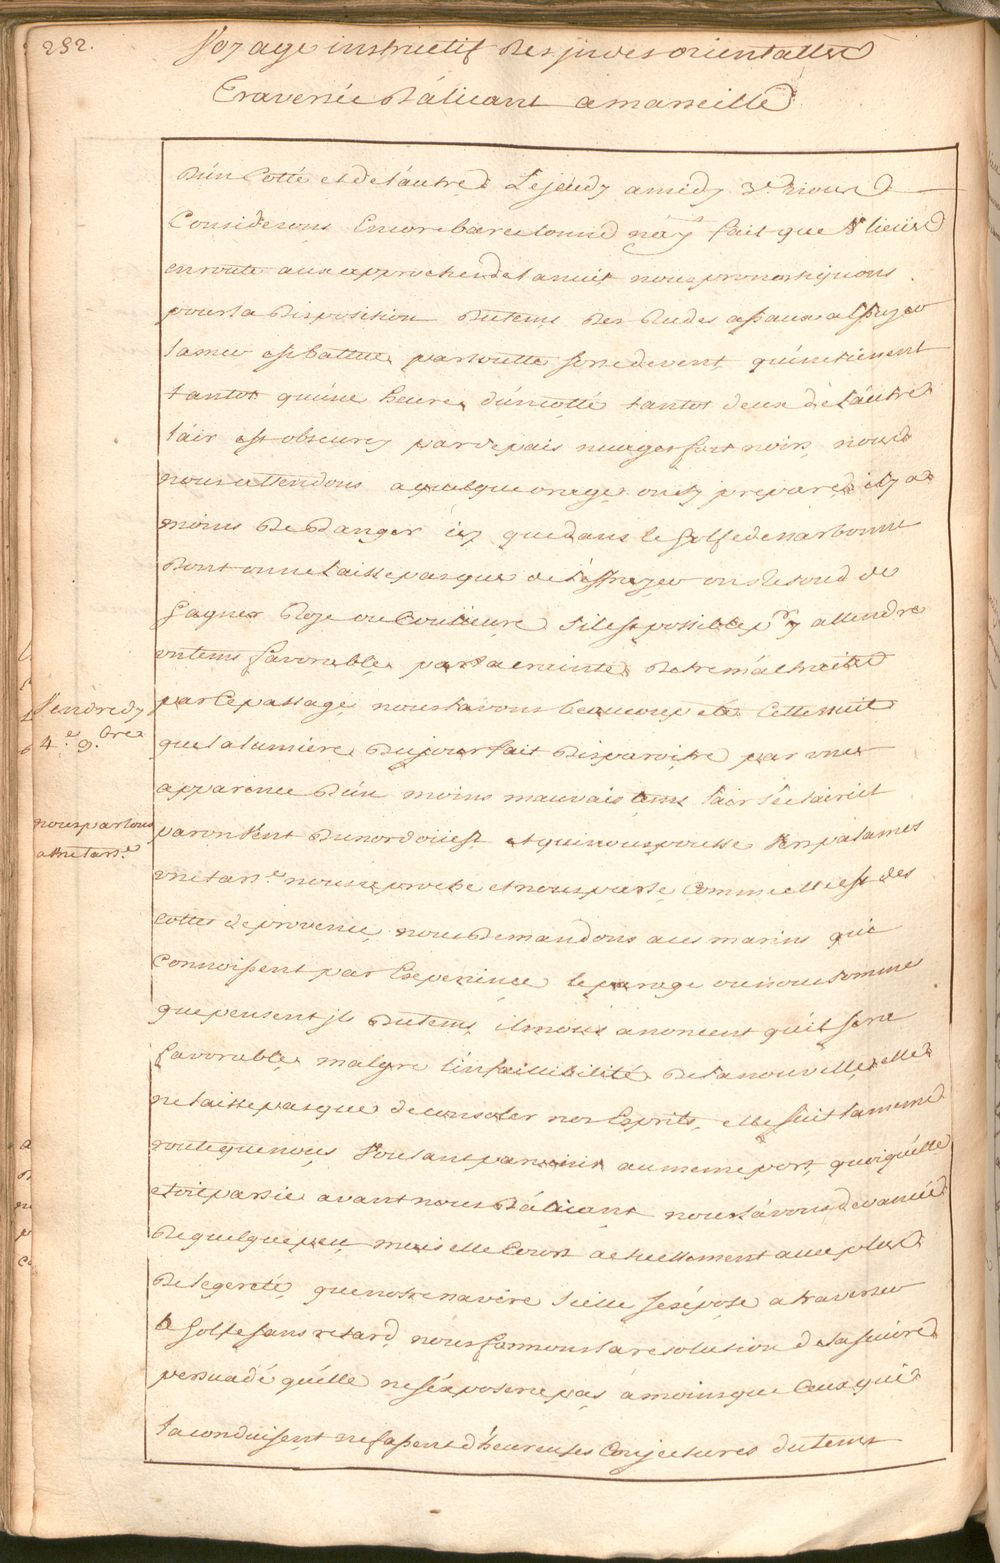 232.
Voyage instructif des jndes orientalles
Traversée d'alicant a marseille
d'un Cotté et de l'autre Le jeudy a midy 3e. nous
Considerons Encore barcelonne n'ay fait que 8 lieües
en route aux approches de la nuit nous pronostiquons
pour la disposition du tems des Rudes assaux a Essuyer
la mer est battue par toutte sorte de vent qui ne tiennent
tantot qu'une heure d'un cotté tantot deux de l'autre
l'air est obscurcy par d'epais nuages fort noirs nous
nous attendons a quelque orage on s'y prepare il y a
moins de danger icy que dans le Golfe de narbonne
dont on ne laisse pas que de s'effrayer on Resoud de
Gagner Roze ou Coulieure s'il est possible pr. y attendre
un tems favorable par la crainte d'etre maltraité
par Ce passage nous l'avons beaucoup eté Cette nuit
que la lumiere du jour fait disparoitre par une
apparence d'un moins mauvais tems l'air s'eclaircit
par un Vent du nord oüest et qui nous pousse Vers palamos
une tarne. nous aproche et nous parle Comme elle est des
cottes de provence nous demandons a ces marins qui
connoissent par Experience le parage ou nous somme
que pensent jls du tems ils nous anoncent qu'il sera
favorable malgré l'infaillibilité de la nouvelle elle
ne laisse pas que de consoler nos Esprits, elle suit la meme
route que nous Voulant parvenir au meme port quoiqu'elle
etoit partie avant nous d'alicant nous l'avons devancée
de quelque peu mais elle Court actuellement avec plus
de legereté que notre navire si elle s'expose a traverser
le Golfe sans retard nous formons la resolution de la suivre
persuadé qu'elle ne s'exposera pas a moins que Ceux qui
la conduisent ne fassent d'heureuses Conjectures du tems
Vendredy
4e. 9bre
nous parlons
a une tarne.